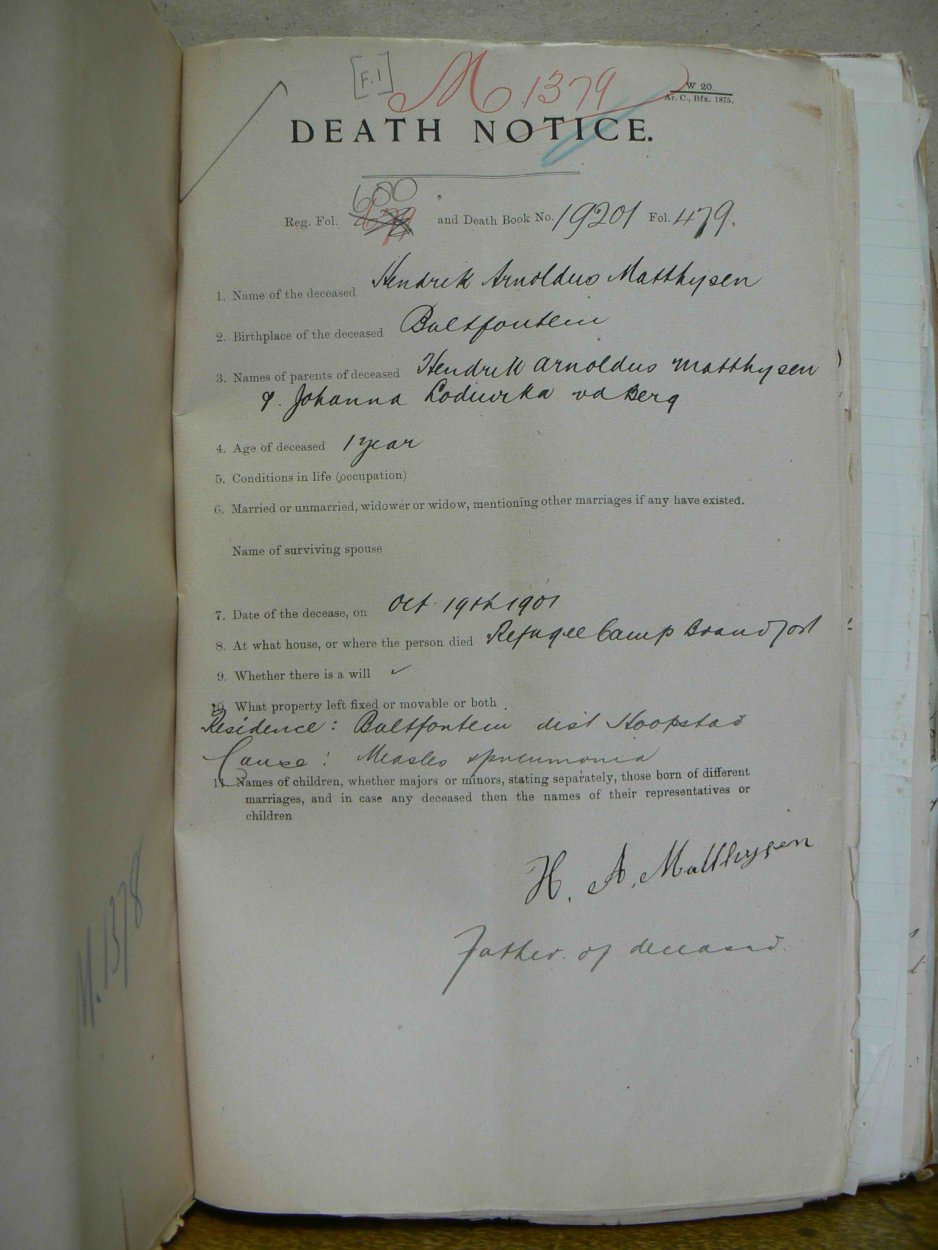 [F.1] M 1379
W 20.
Ar. C., Bfx. 1875.
DEATH NOTICE.
680
Reg. Fol. and Death Book No. 19201 Fol. 479.
1. Name of the deceased Hendrik Arnoldus Matthysen
2. Birthplace of the deceased Bultfontein
3. Names of parents of deceased Hendrik Arnoldus Matthysen
& Johanna vd Berg
4. Age of deceased 1 year
5. Conditions in life (occupation)
6. Married or unmarried, widower or widow, mentioning other marriages if any have existed.
Name of surviving spouse
7. Date of the decease, on Oct. 19th 1901
8. At what house, or where the person died Refugee Camp Brandfort
9. Whether there is a will ✓
10. What property left fixed or movable or both
Residence: Bultfontein dist Hoopstad
Cause: Measles & pneumonia
11. Names of children, whether majors or minors, stating separately, those born of different
marriages, and in case any deceased then the names of their representatives or
children
H. A. Matthysen
Father of deceased.
M. 1378